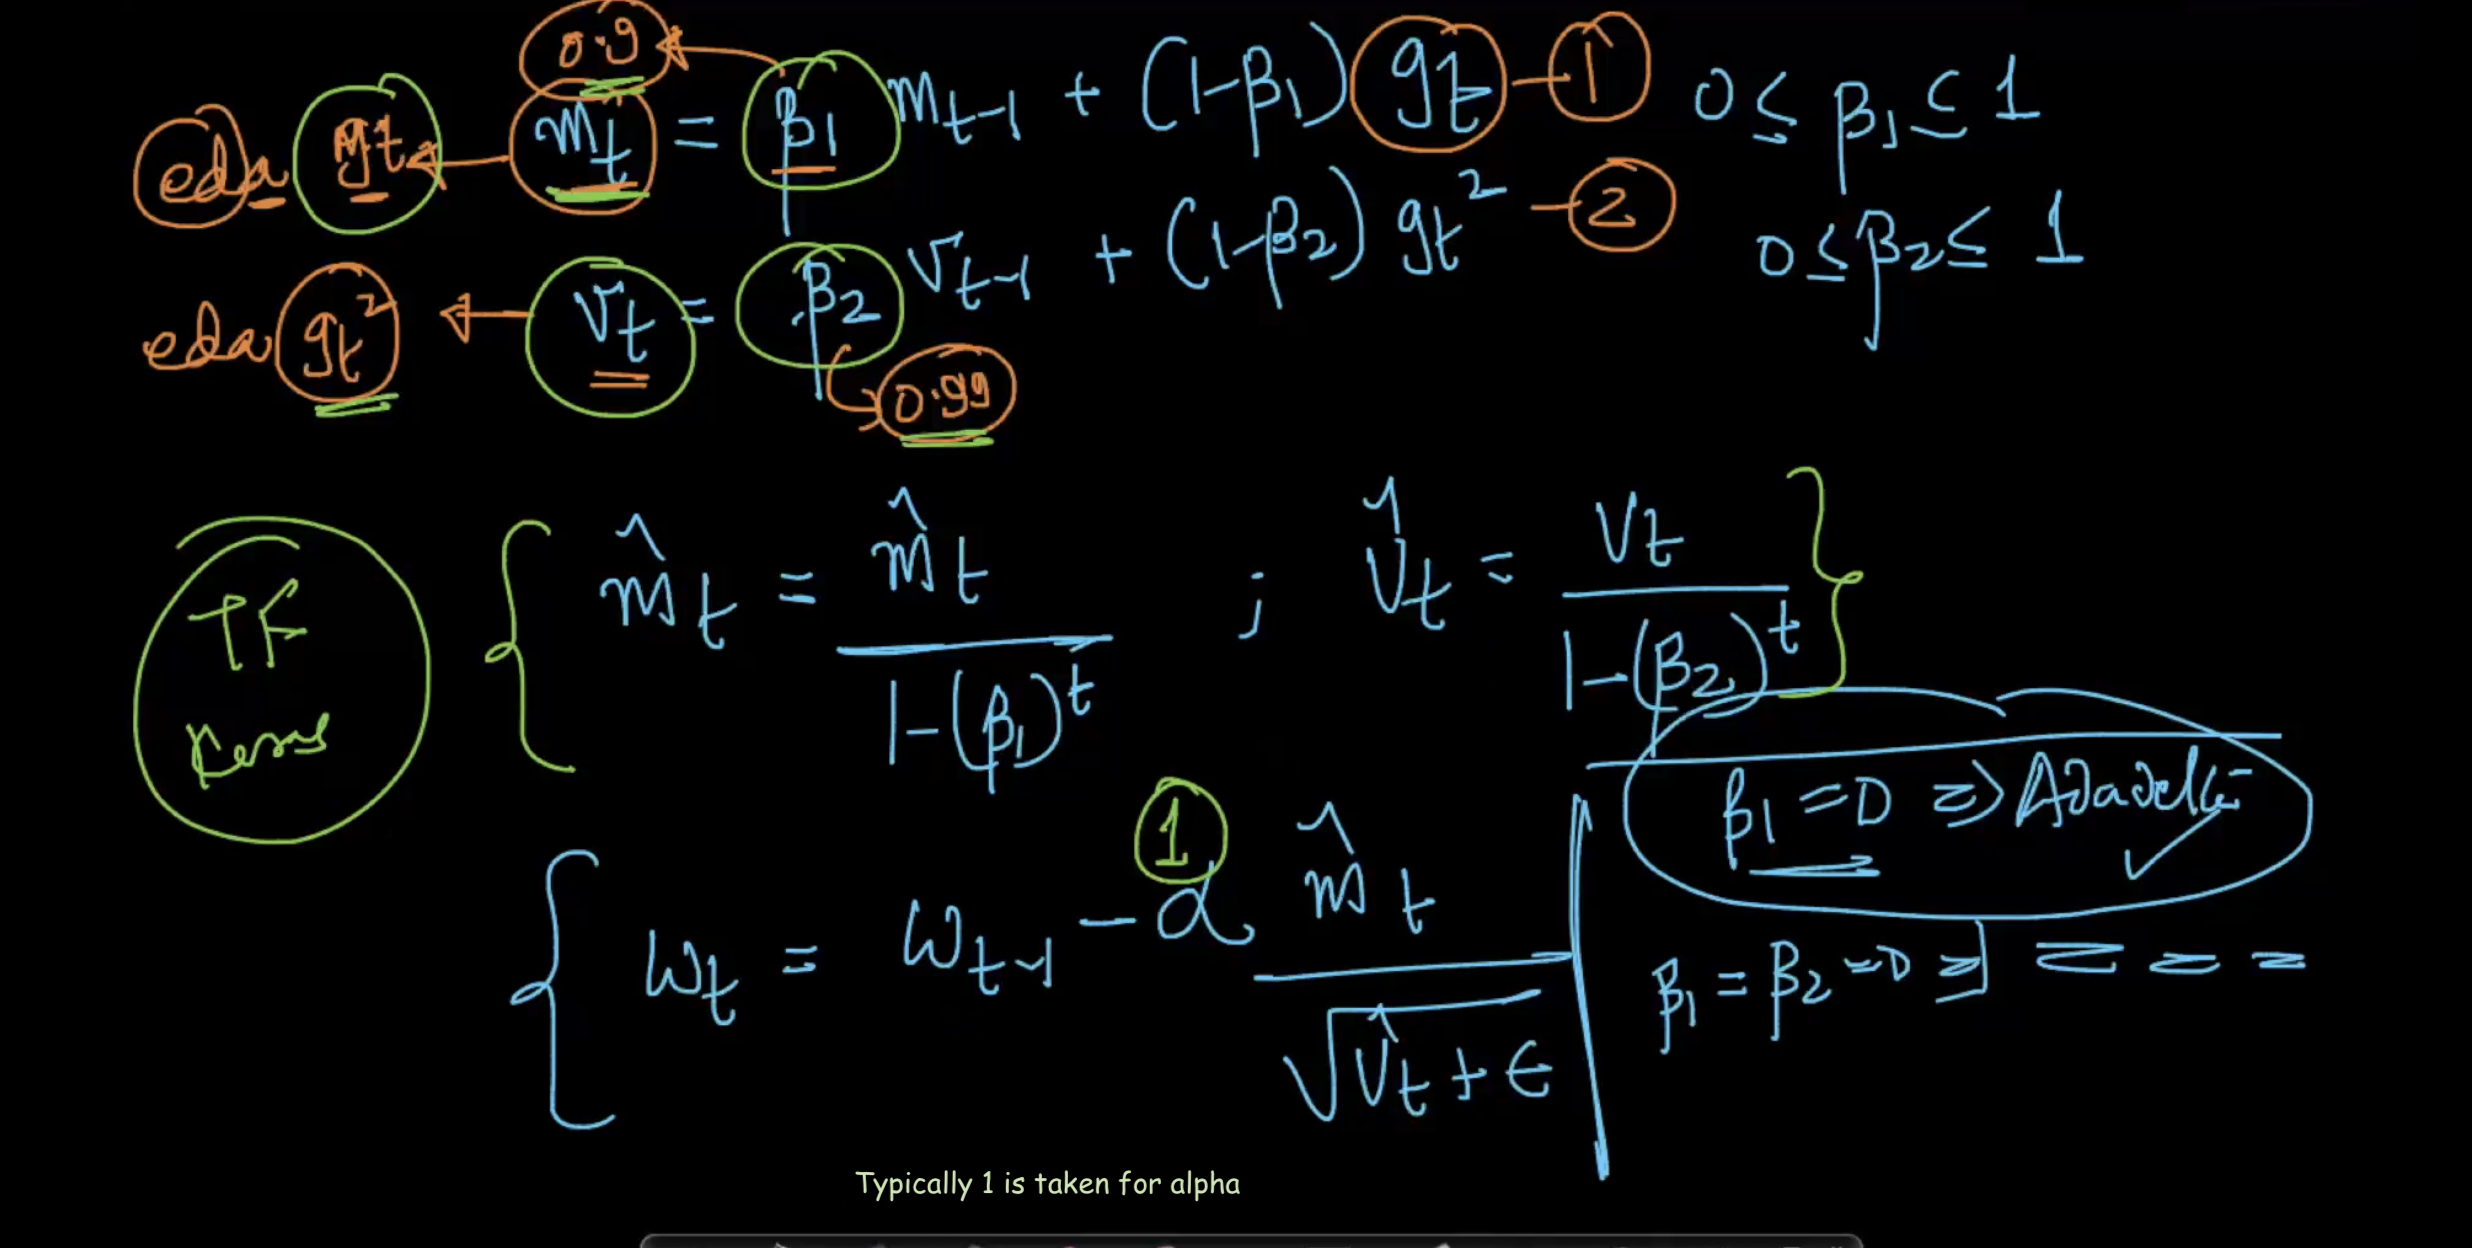 0.9
eda gt ← mt = β1 mt-1 + (1-β1) gt - 1 0 ≤ β1 ≤ 1
eda gt² ← vt = β2 vt-1 + (1-β2) gt² - 2 0 ≤ β2 ≤ 1
0.99
TF
Keras
{ m̂t = m̂t / 1-(β1)^t ; v̂t = vt / 1-(β2)^t }
1
{ wt = wt-1 - α m̂t / √v̂t + ϵ
β1 = 0 ⇒ Adadelta ✓
β1 = β2 = 0 ⇒
Typically 1 is taken for alpha